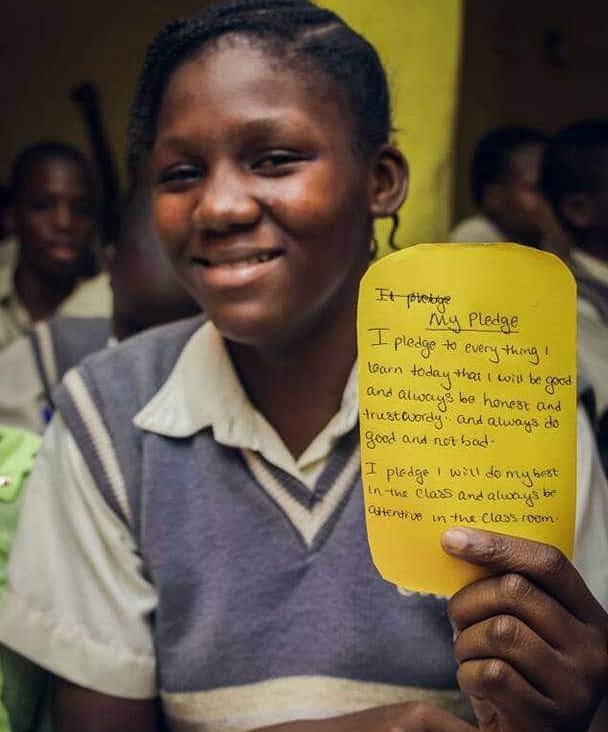 It pledge
My Pledge
I pledge to every thing I
learn today that I will be good
and always be honest and
trustwordy. and always do
good and not bad.
I pledge I will do my best
in the class and always be
attentive in the class room.